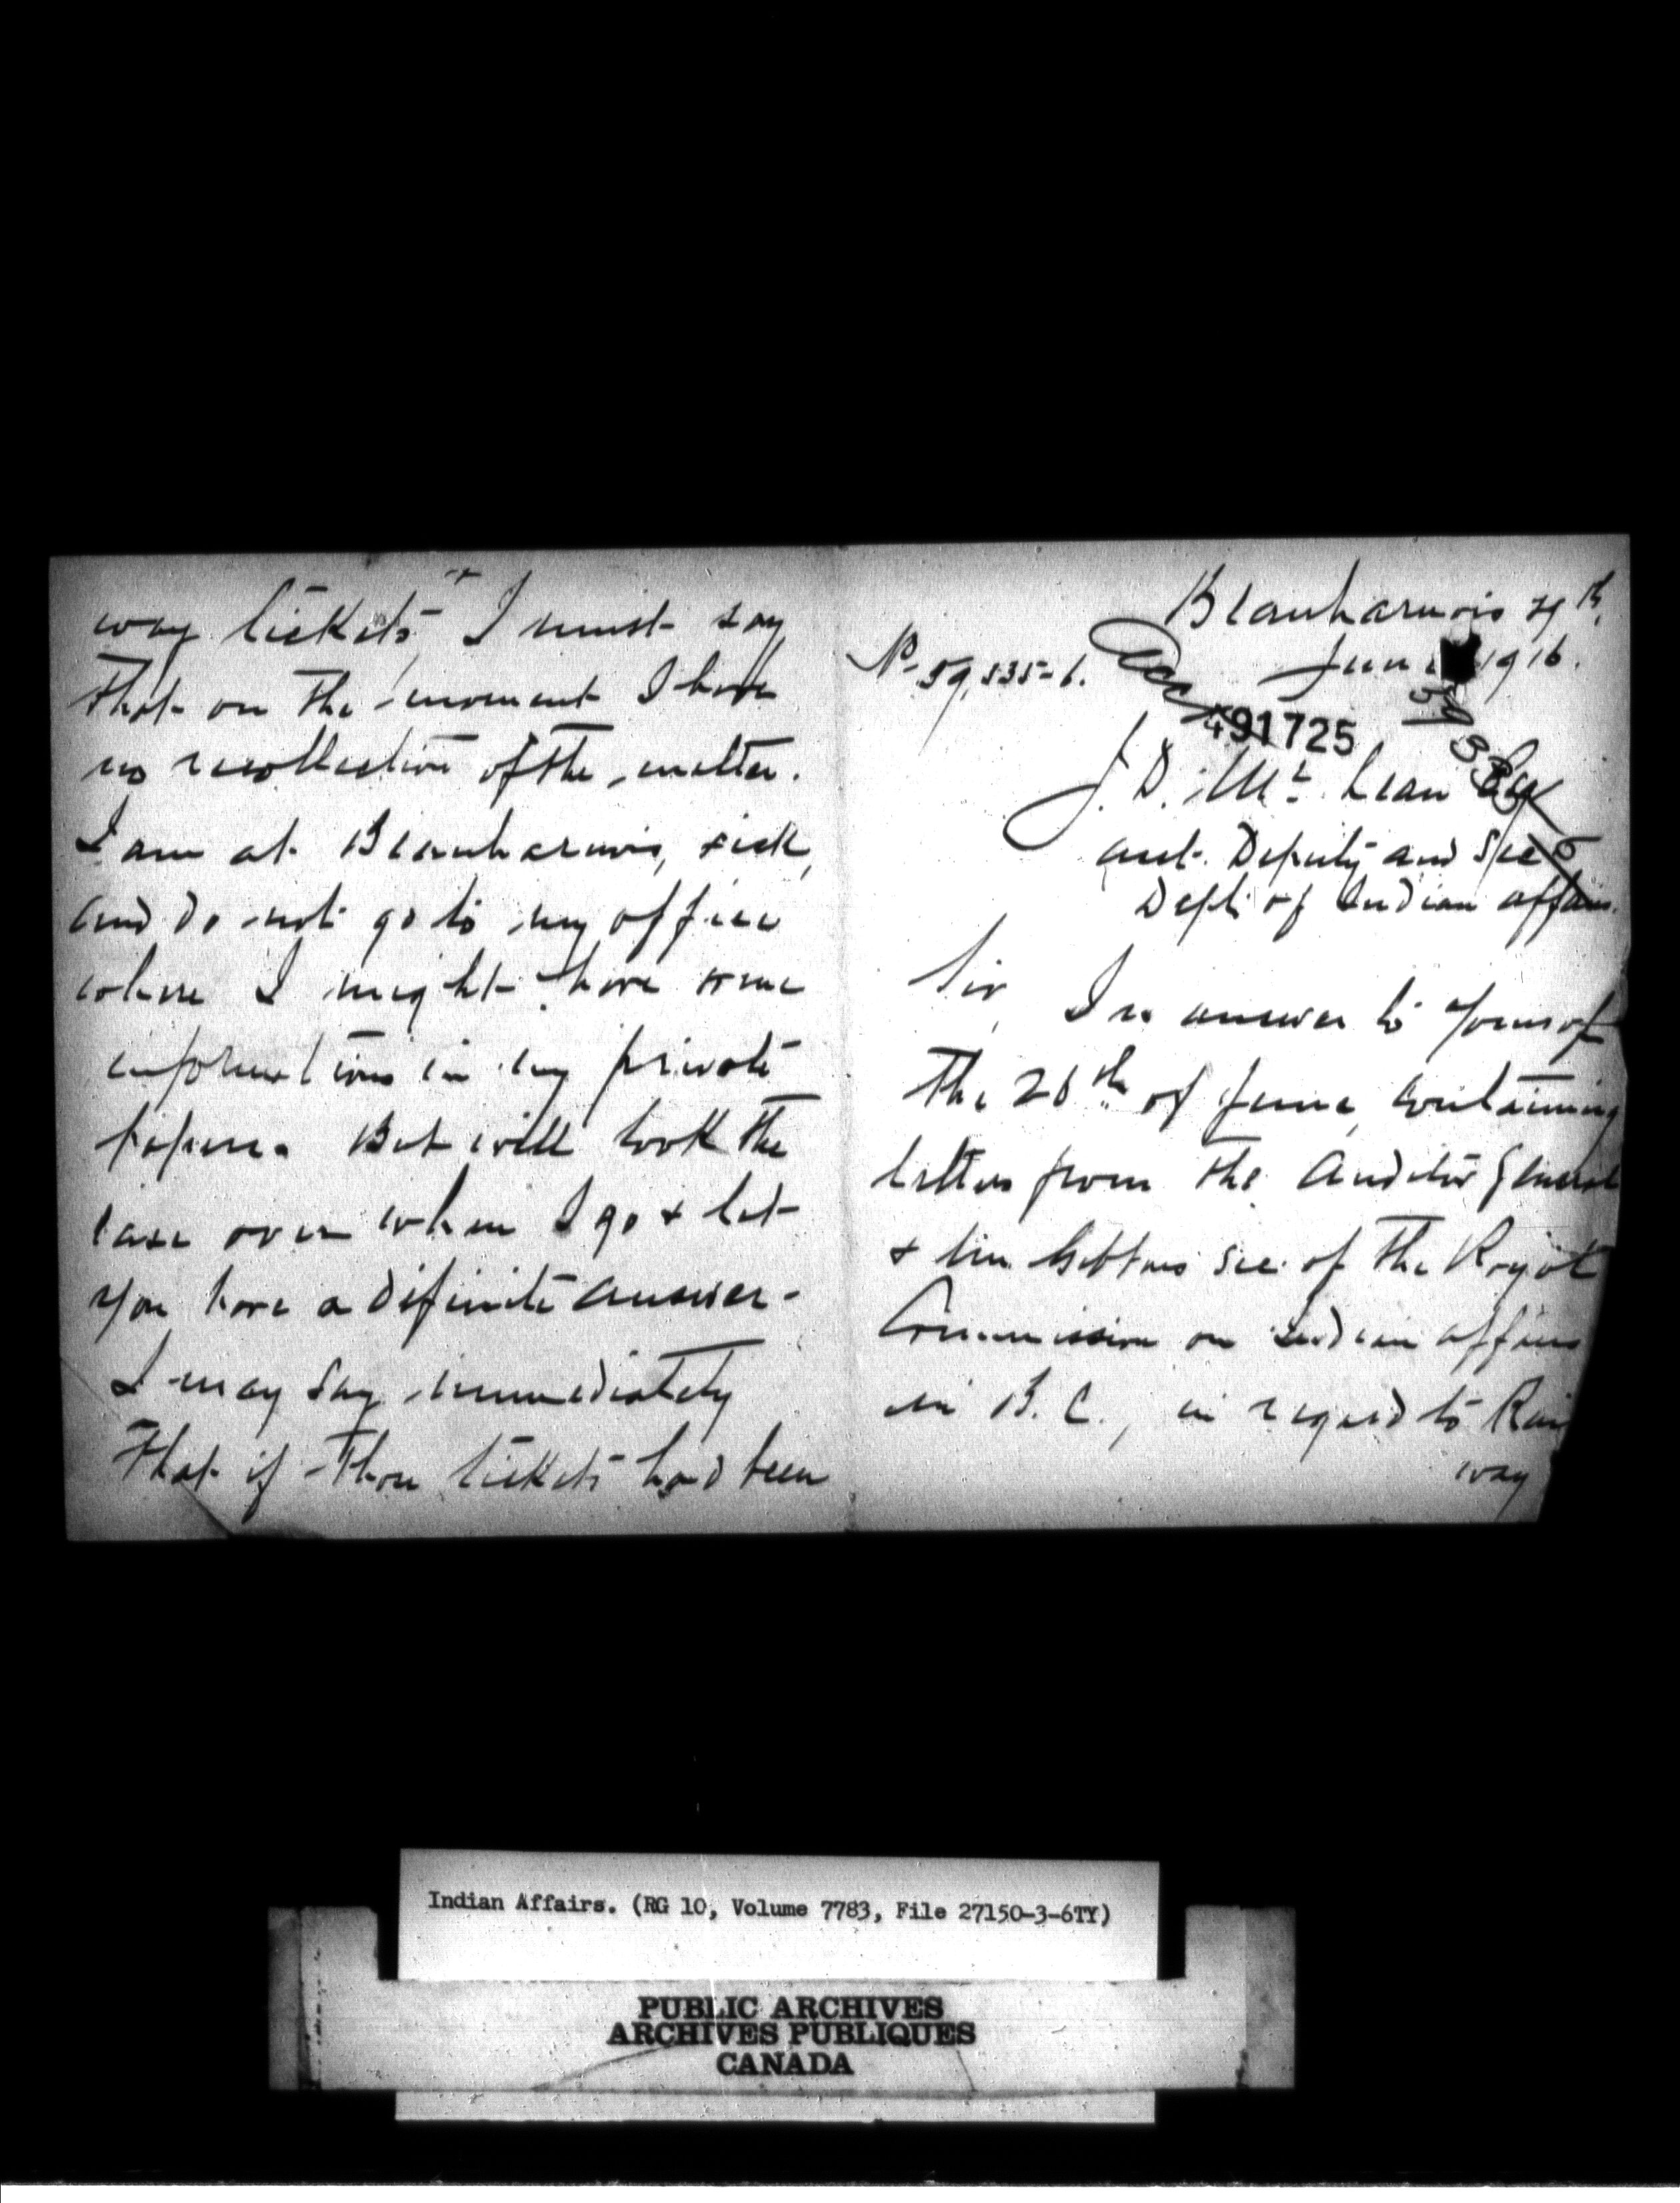 Beauharnois 29th.
June 1916.
No 59,335-6.
Acc
491725
59335-6
J. D. McLean Esq
asst. Deputy and Sec
Dept. of Indian affairs.
Sir,
In answer to yours of
the 26th of June, containing
letters from the Auditor General
& the Sec of the Royal
Commission on Indian affairs
in B.C., in regard to Rail
way
way tickets, I must say
that on the moment I have
no recollection of the matter.
I am at Beauharnois, sick,
and do not go to my office
where I might have some
informations in my private
papers. But will look the
case over when I go & let
you have a definite answer -
I may say immediately
that if those tickets had been
Indian Affairs. (RG 10, Volume 7783, File 27150-3-6TY)
PUBLIC ARCHIVES
ARCHIVES PUBLIQUES
CANADA